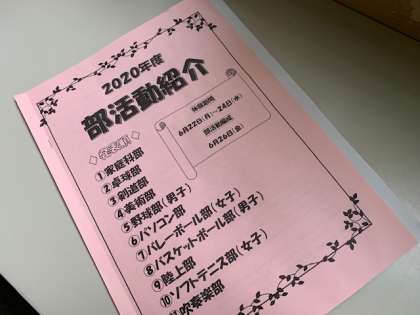 2020年度
部活動紹介
体験期間
6月22日(月)~24日(水)
部活動編成
6月26日(金)
発表順
①家庭科部
②卓球部
③剣道部
④美術部
⑤野球部(男子)
⑥パソコン部
⑦バレーボール部(女子)
⑧バスケットボール部(男子)
⑨陸上部
⑩ソフトテニス部(女子)
⑪吹奏楽部